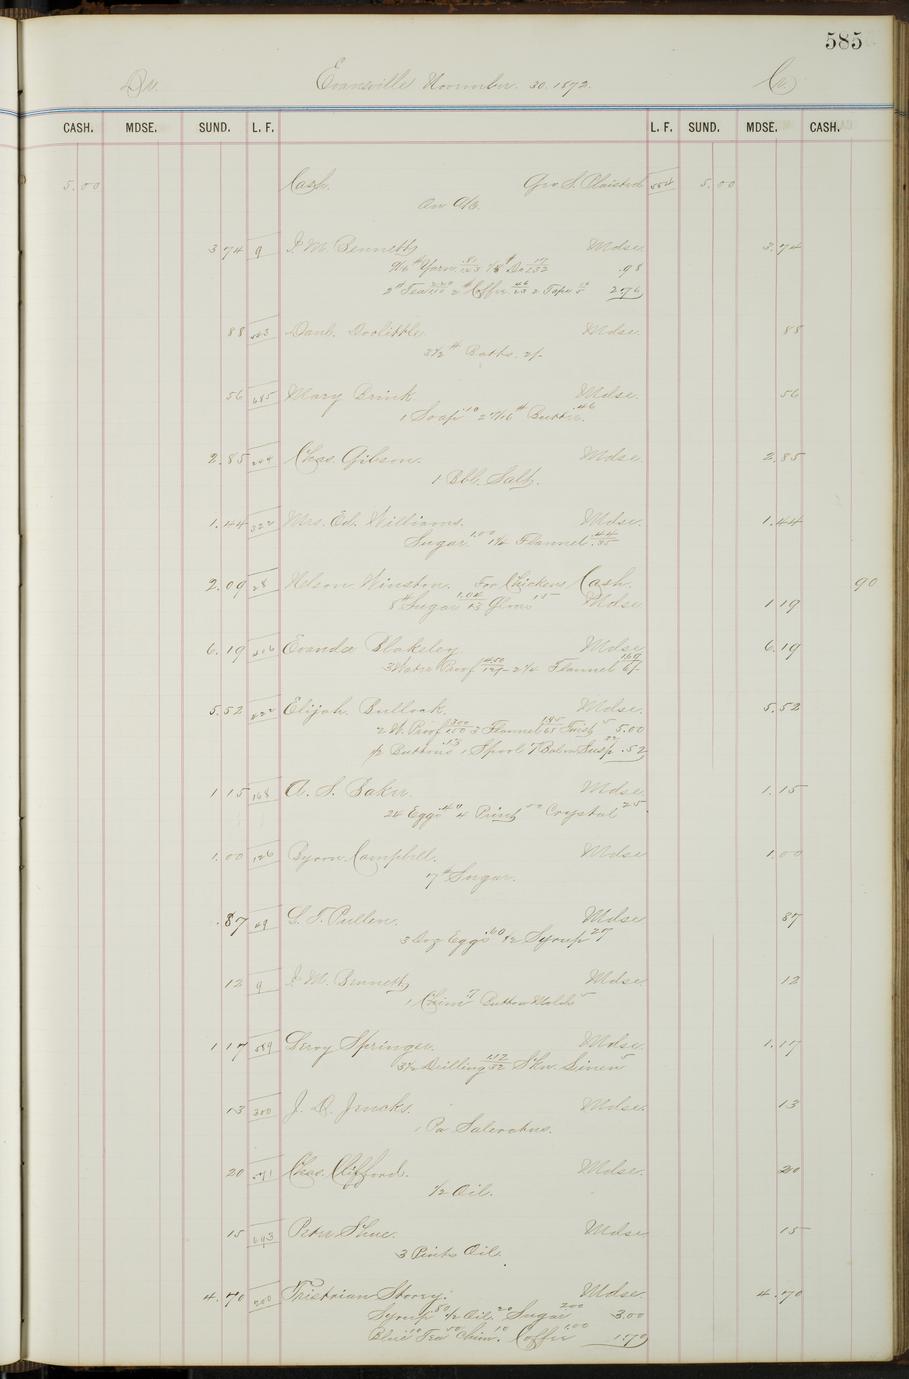 585
Dr. Evansville November. 30. 1872. Cr.
CASH. MDSE. SUND. L. F. L. F. SUND. MDSE. CASH.
5.00 Cash. Geo S. 554 5.00
On a/c.
3 74 9 I M Bennett Mdse 3.74
9/16 # Yarn 1/8 # Do .98
2 # Tea 2 # Coffee 2 Tape 2 76
88 Danl. Doolittle Mdse 88
3 1/2 # Batts. 2/-
56 685 Mary Brink Mdse. 56
1 Soap 10 2 # Butter. .46
2.85 Chas. Gibson. Mdse 2.85
1 Bbl. Salt.
1.44 322 Mrs. Ed. Williams. Mdse. 1.44
Sugar 1.00 1 1/4 Flannel .44
2.09 28 Nelson Winston. For Chickens Cash. 90
8 # Sugar 1.04 13 15 Mdse 1 19
6.19 Blakeley Mdse 6.19
3 Water Proof 4.50 2 1/4 Flannel 1.69 6/-
5.52 Elijah Bullock. Mdse. 5.52
2 W. Proof 3.00 3 Flannel 1.95 65 Twist 5 5.00
Buttons 13 1 Spool 7 .52
1 15 168 A. S. Baker. Mdse. 1.15
24 Eggs .40 4 Print 50 Crystal 25
1.00 126 Byron. Campbell. Mdse 1.00
7 # Sugar.
.87 49 L. T. Pullen. Mdse 87
3 Doz Eggs .60 1/2 Syrup 27
12 9 I M. Bennett Mdse 12
1 Chim 7 Button Molds 5
1 17 589 Leroy Springer. Mdse. 1.17
3 1/2 Drilling 1.12 32 Skn. Linen 5
13 300 J. D. Jencks. Mdse. 13
1 Pa Saleratus.
20 Chas. Clifford. Mdse. 20
1/2 Oil.
15 643 Peter Shue. Mdse 15
3 Pints Oil.
4.70 200 Tristrian Storey. Mdse 4.70
Syrup 80 1/2 Oil. 20 Sugar 200 3.00
Blue .10 Tea 50 Chim. 10 Coffee 1.00 1.70